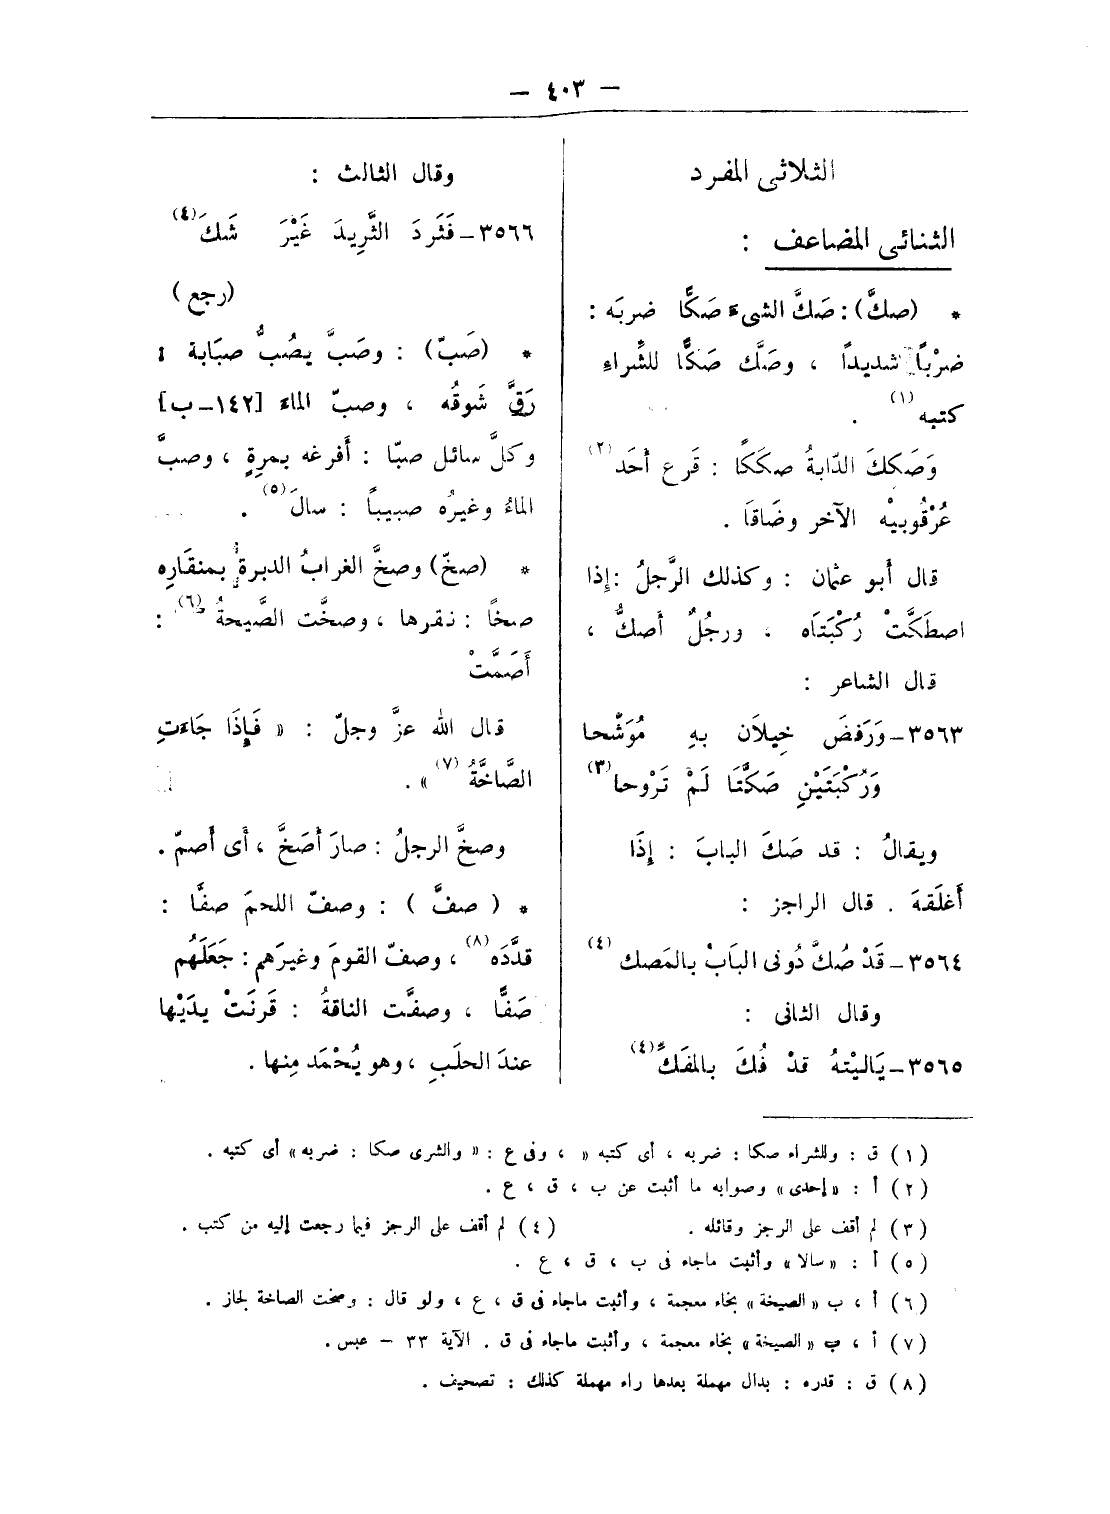 — ٤٠٣ —
الثلاثى المفرد
الثنائى المضاعف :
* (صكَّ) : صَكَّ الشىءَ صَكًّا ضربَه :
ضرْباً شديداً ، وصَكَّ صَكًّا للشِّراءِ
كتبه (١) .
وَصَكِكَ الدّابةُ صكَكًا : قَرع أحَد (٢)
عُرْقُوبيْه الآخر وضَاقَا .
قال أبو عثمان : وكذلك الرَّجلُ : إذا
اصطَكَّتْ رُكْبَتَاه ، ورجُلٌ أصكُّ ،
قال الشاعر :
٣٥٦٣ – وَرَفضَ خِيلَان بهِ مُوَشَّحا
وَرُكْبَتَيْنِ صَكَّتَا لَمْ تَرْوحا (٣)
ويقالُ : قد صَكَ البابَ : إِذَا
أَغلَقهَ . قال الراجز :
٣٥٦٤ – قَدْ صُكَّ دُونى البَابْ بالمَصك (٤)
وقال الثانى :
٣٥٦٥ – يَاليْتهُ قدْ فُكَ بالمفَكّ (٤)
وقال الثالث :
٣٥٦٦ – فَثَردَ الثَّرِيدَ غَيْرَ شَكَ (٤)
(رجع)
* (صَبّ) : وصَبَّ يصُبُّ صبَابة :
رَقَّ شَوقُه ، وصبّ الماءَ [١٤٢ – ب]
وكلَّ سائل صبّا : أَفرغه بمرةٍ ، وصبَّ
الماءُ وغيرُه صبيباً : سالَ (٥) .
* (صخّ) وصخَّ الغرابُ الدبرةَ بمنقَارِه
صخًا : نقرها ، وصخَّت الصَّيحةُ (٦) :
أَصَمَّتْ
قال الله عزَّ وجلّ : « فَإِذَا جَاءَتِ
الصَّاخَّةُ (٧) » .
وصخَّ الرجلُ : صارَ أَصَخَّ ، أى أصمّ .
* ( صفَّ ) : وصفّ اللحمَ صفًّا :
قدَّدَه (٨) ، وصفّ القومَ وغيرَهم : جَعَلَهُم
صَفًّا ، وصفَّت الناقةُ : قَرنَتْ يدَيْها
عندَ الحلَبِ ، وهو يُحْمَد مِنها .
(١) ق : وللشراء صكا : ضربه ، أى كتبه « ، وفى ع : « والشرى صكا : ضربه » أى كتبه .
(٢) أ : « إحدى » وصوابه ما أثبت عن ب ، ق ، ع .
(٣) لم أقف على الرجز وقائله . (٤) لم أقف على الرجز فيما رجعت إليه من كتب .
(٥) أ : « سالا » وأثبت ماجاء فى ب ، ق ، ع .
(٦) أ ، ب « الصيخة » بخاء معجمة ، وأثبت ماجاء فى ق ، ع ، ولو قال : وصخت الصاخة لجاز .
(٧) أ ، ب « الصيخة » بخاء معجمة ، وأثبت ماجاء فى ق . الآية ٣٣ – عبس .
(٨) ق : قدره : بدال مهملة بعدها راء مهملة كذلك : تصحيف .